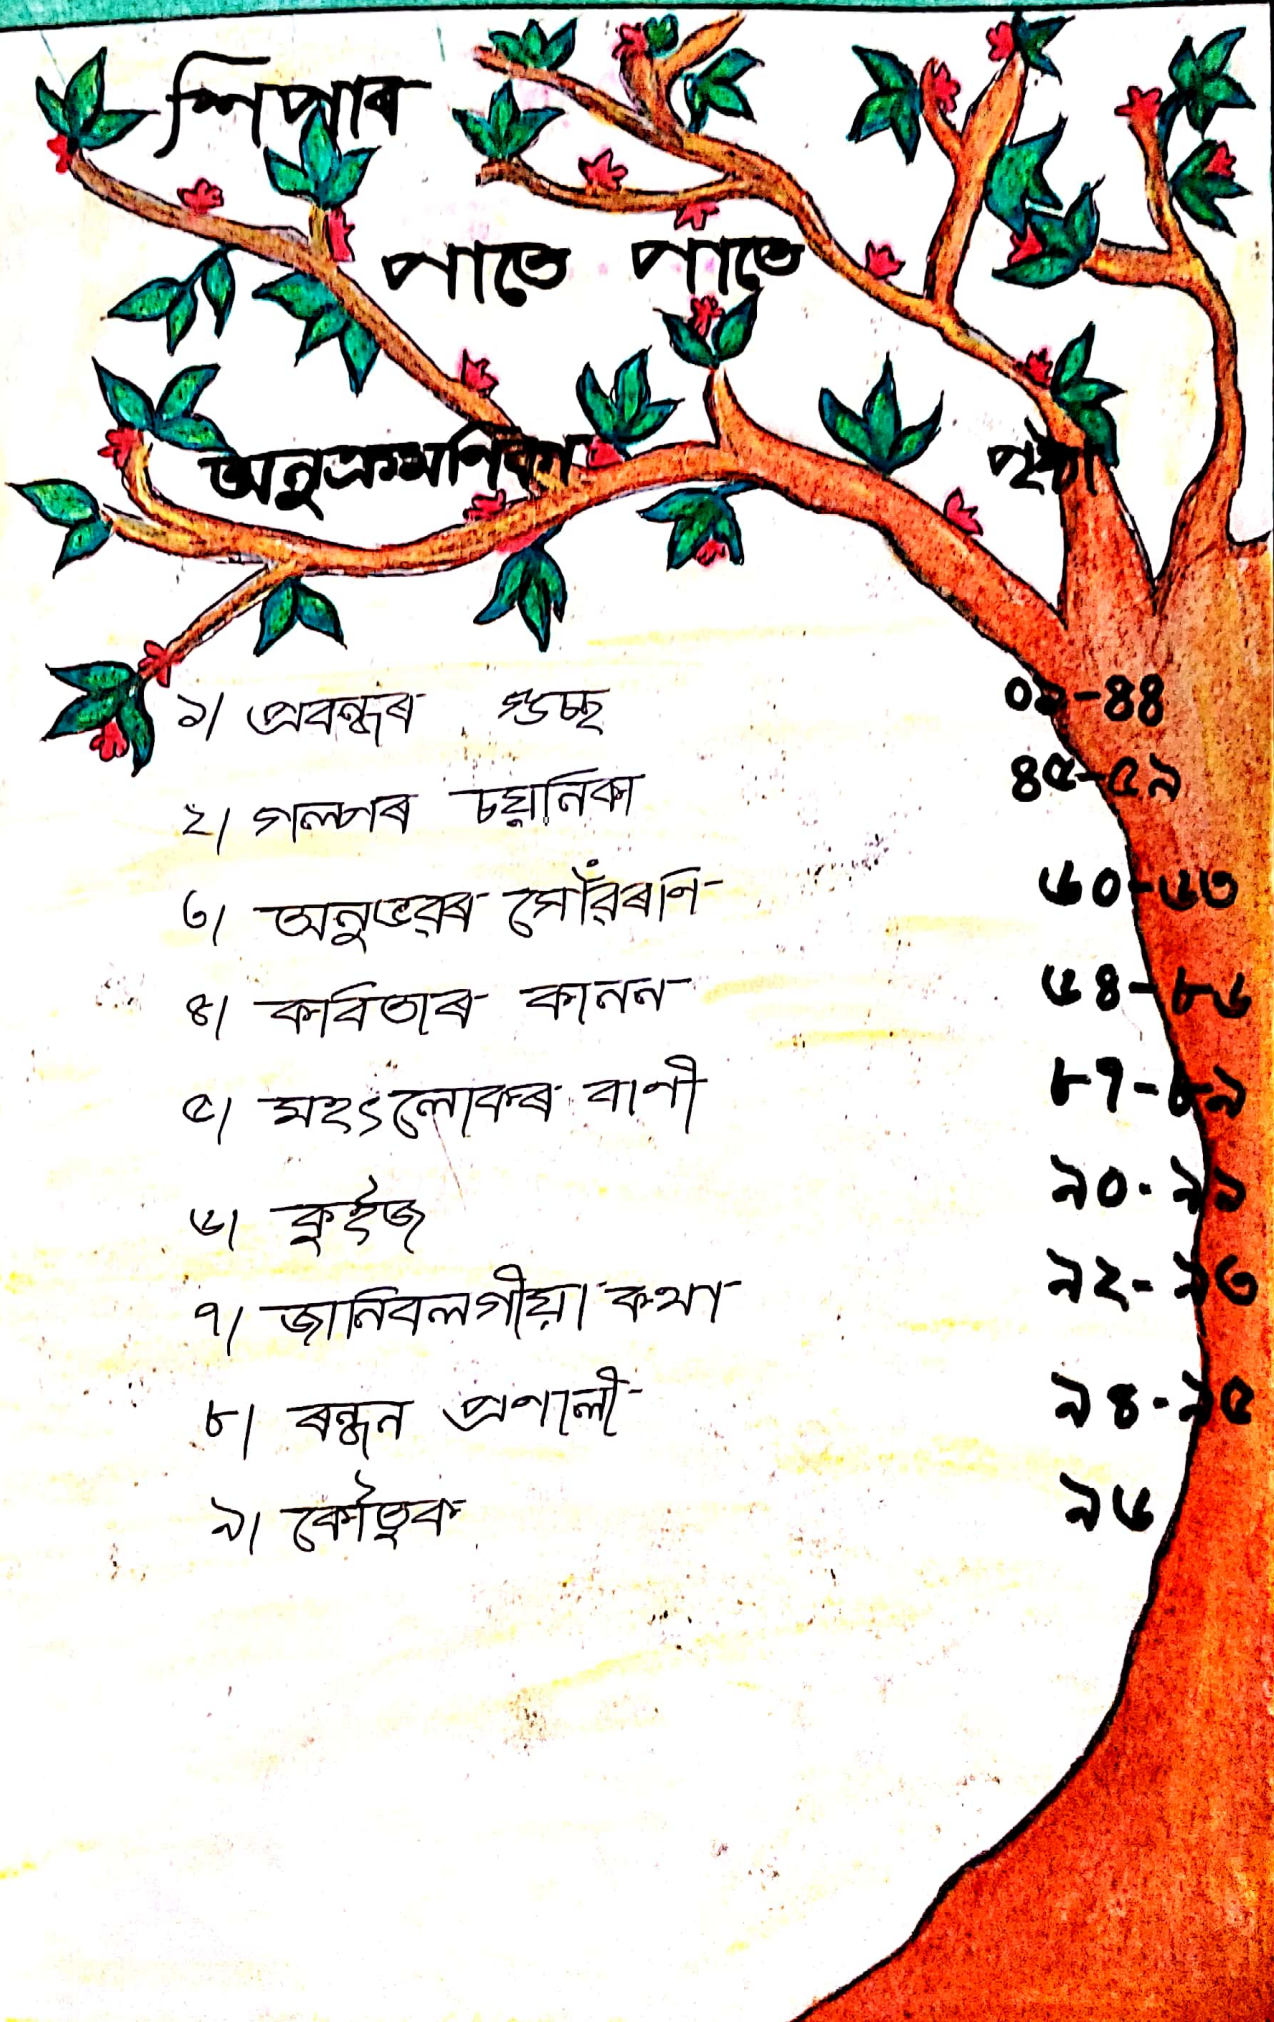 শিপাৰ
পাতে পাতে
অনুক্ৰমণিকা পৃষ্ঠা
১। প্ৰবন্ধৰ গুচ্ছ ০১-৪৪
২। গল্পৰ চয়নিকা ৪৫-৫৯
৩। অনুভৱৰ সোঁৱৰণি ৬০-৬৩
৪। কবিতাৰ কানন ৬৪-৮৬
৫। মহৎলোকৰ বাণী ৮৭-৮৯
৬। কুইজ ৯০-৯১
৭। জানিবলগীয়া কথা ৯২-৯৩
৮। ৰন্ধন প্ৰণালী ৯৪-৯৫
৯। কৌতুক ৯৬